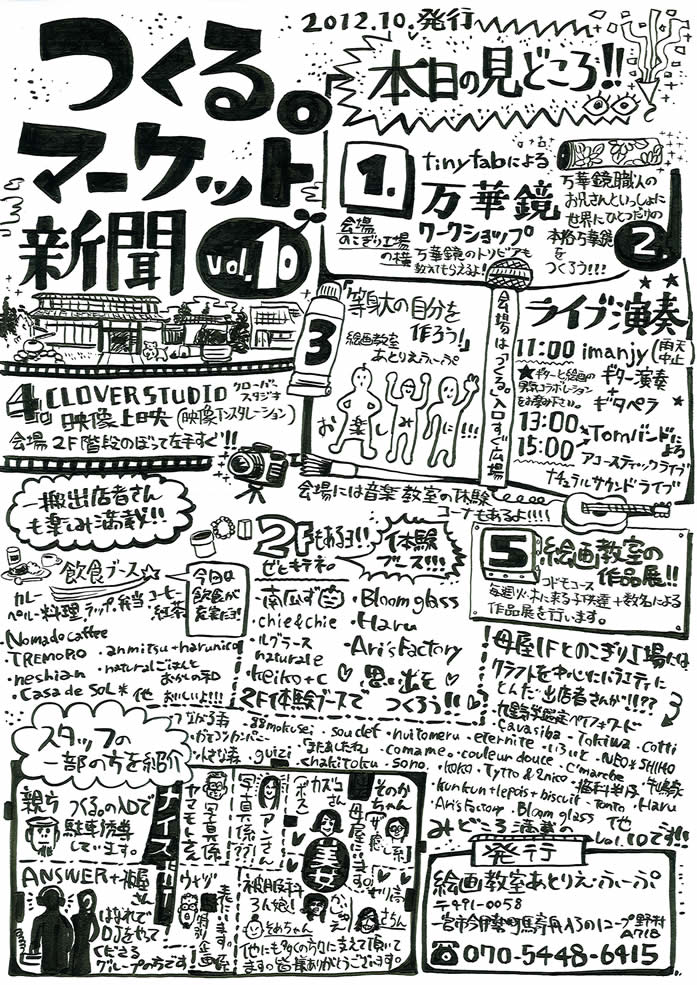 2012.10.発行
つくる。
マーケット
新聞
vol.10
本日の見どころ!!
1.
tinyfabによる
万華鏡
ワークショップ
会場
のこぎり工場
の横
万華鏡のトリビアも
教えてもらえるよ!
万華鏡職人の
お兄さんといっしょに
世界にひとつだけの
本格万華鏡
を
つくろう!!!
2.
ライブ演奏
会場はつくる。入口すぐ広場
11:00 imanjy (雨天
中止
ギター演奏
+
ギタペラ
13:00
15:00
Tomバンドによる
アコースティックライブ
ナチュラルサウンドライブ
3
「等身大の自分を
作ろう!」
絵画教室
あとりえふぃーぷ
お楽しみに!!!
4
CLOVER STUDIO
クローバー
スタジオ
映像上映(映像インスタレーション)
会場2F階段のぼって左手すぐ!!
会場には音楽教室の体験
コーナーもあるよ!!!!
一般出店者さん
も楽しみ満載!!
飲食ブース☆
今日は
飲食が
充実だヨ!
カレー
ペルー料理 ラップ弁当 コーヒー
紅茶
・Nomado caffee
・TREMORO
・anmitsu+harunico
・neshian
・naturalごはんと
おかしの和
・Casa de SoL* 他
おいしいよ!!!
2Fもあるヨ!!
ぜヒキテネ。
体験
ブース!!!
・南瓜ず
・chie&chie
・ルグラース
naturale
・keiko+c
・Bloom glass
・Haru
・Ari's Factory
♡思い出を♡
2F体験ブースで つくろう!!
5
絵画教室の
作品展!!
コドモコース
毎週火・木に来る子供達+数名による
作品展を行います。
母屋1Fとのこぎり工場には
クラフトを中心にバラエティに
とんだ出店者さんが!!??
・88mokusei
・soudef
・nuitomeru
・eternite
・いろいと
・NEO*SHIHO
・Cavasiba
・Tokiwa
・Cotti
・小さな森
・guizi
・chakitoku
・sono.
・comame
・couleur douce
・C'marche
・koko
・Tytto&2nico
・kunkun+lepois+biscuit
・tonto
・Haru
・Ari's Factory
・Bloom glass 他
みどころ満載の
vol.10です!!
スタッフの
一部の方を紹介
親方
つくる。のADで
駐車場誘導
しています。
ナイスボディー
ヤマモトさん
写真係
アンさん
写真係??
カズコさん
ボス
美女
そのかちゃん
母屋にいます。
ANSWER+梅屋さん
はなれで
DJをやって
くださる
グループの方です!
他にも多くの方々に支えて頂いて
ます。皆様ありがとうございます。
発行
絵画教室あとりえ・ふぃーぷ
〒491-0058
070-5448-6415